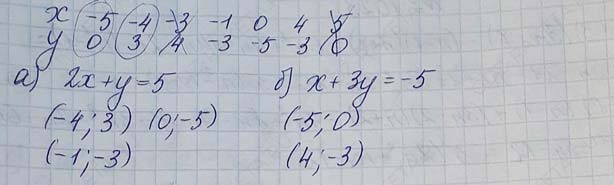 x -5 -4 -3 -1 0 4 5
y 0 3 4 -3 -5 -3 0
а) 2x+y=5 б) x+3y=-5
(-4; 3) (0;-5) (-5; 0)
(-1;-3) (4;-3)